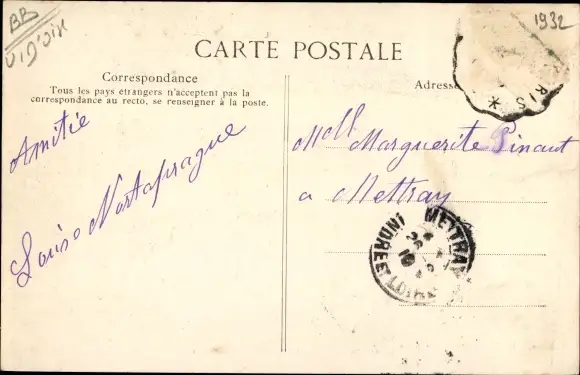 BB
1932
CARTE POSTALE
Correspondance
Tous les pays étrangers n'acceptent pas la
correspondance au recto, se renseigner à la poste.
Adresse
RIS *
Amitié
Mlle Marguerite Pinaut
a Mettray
METTRAY
INDRE ET LOIRE